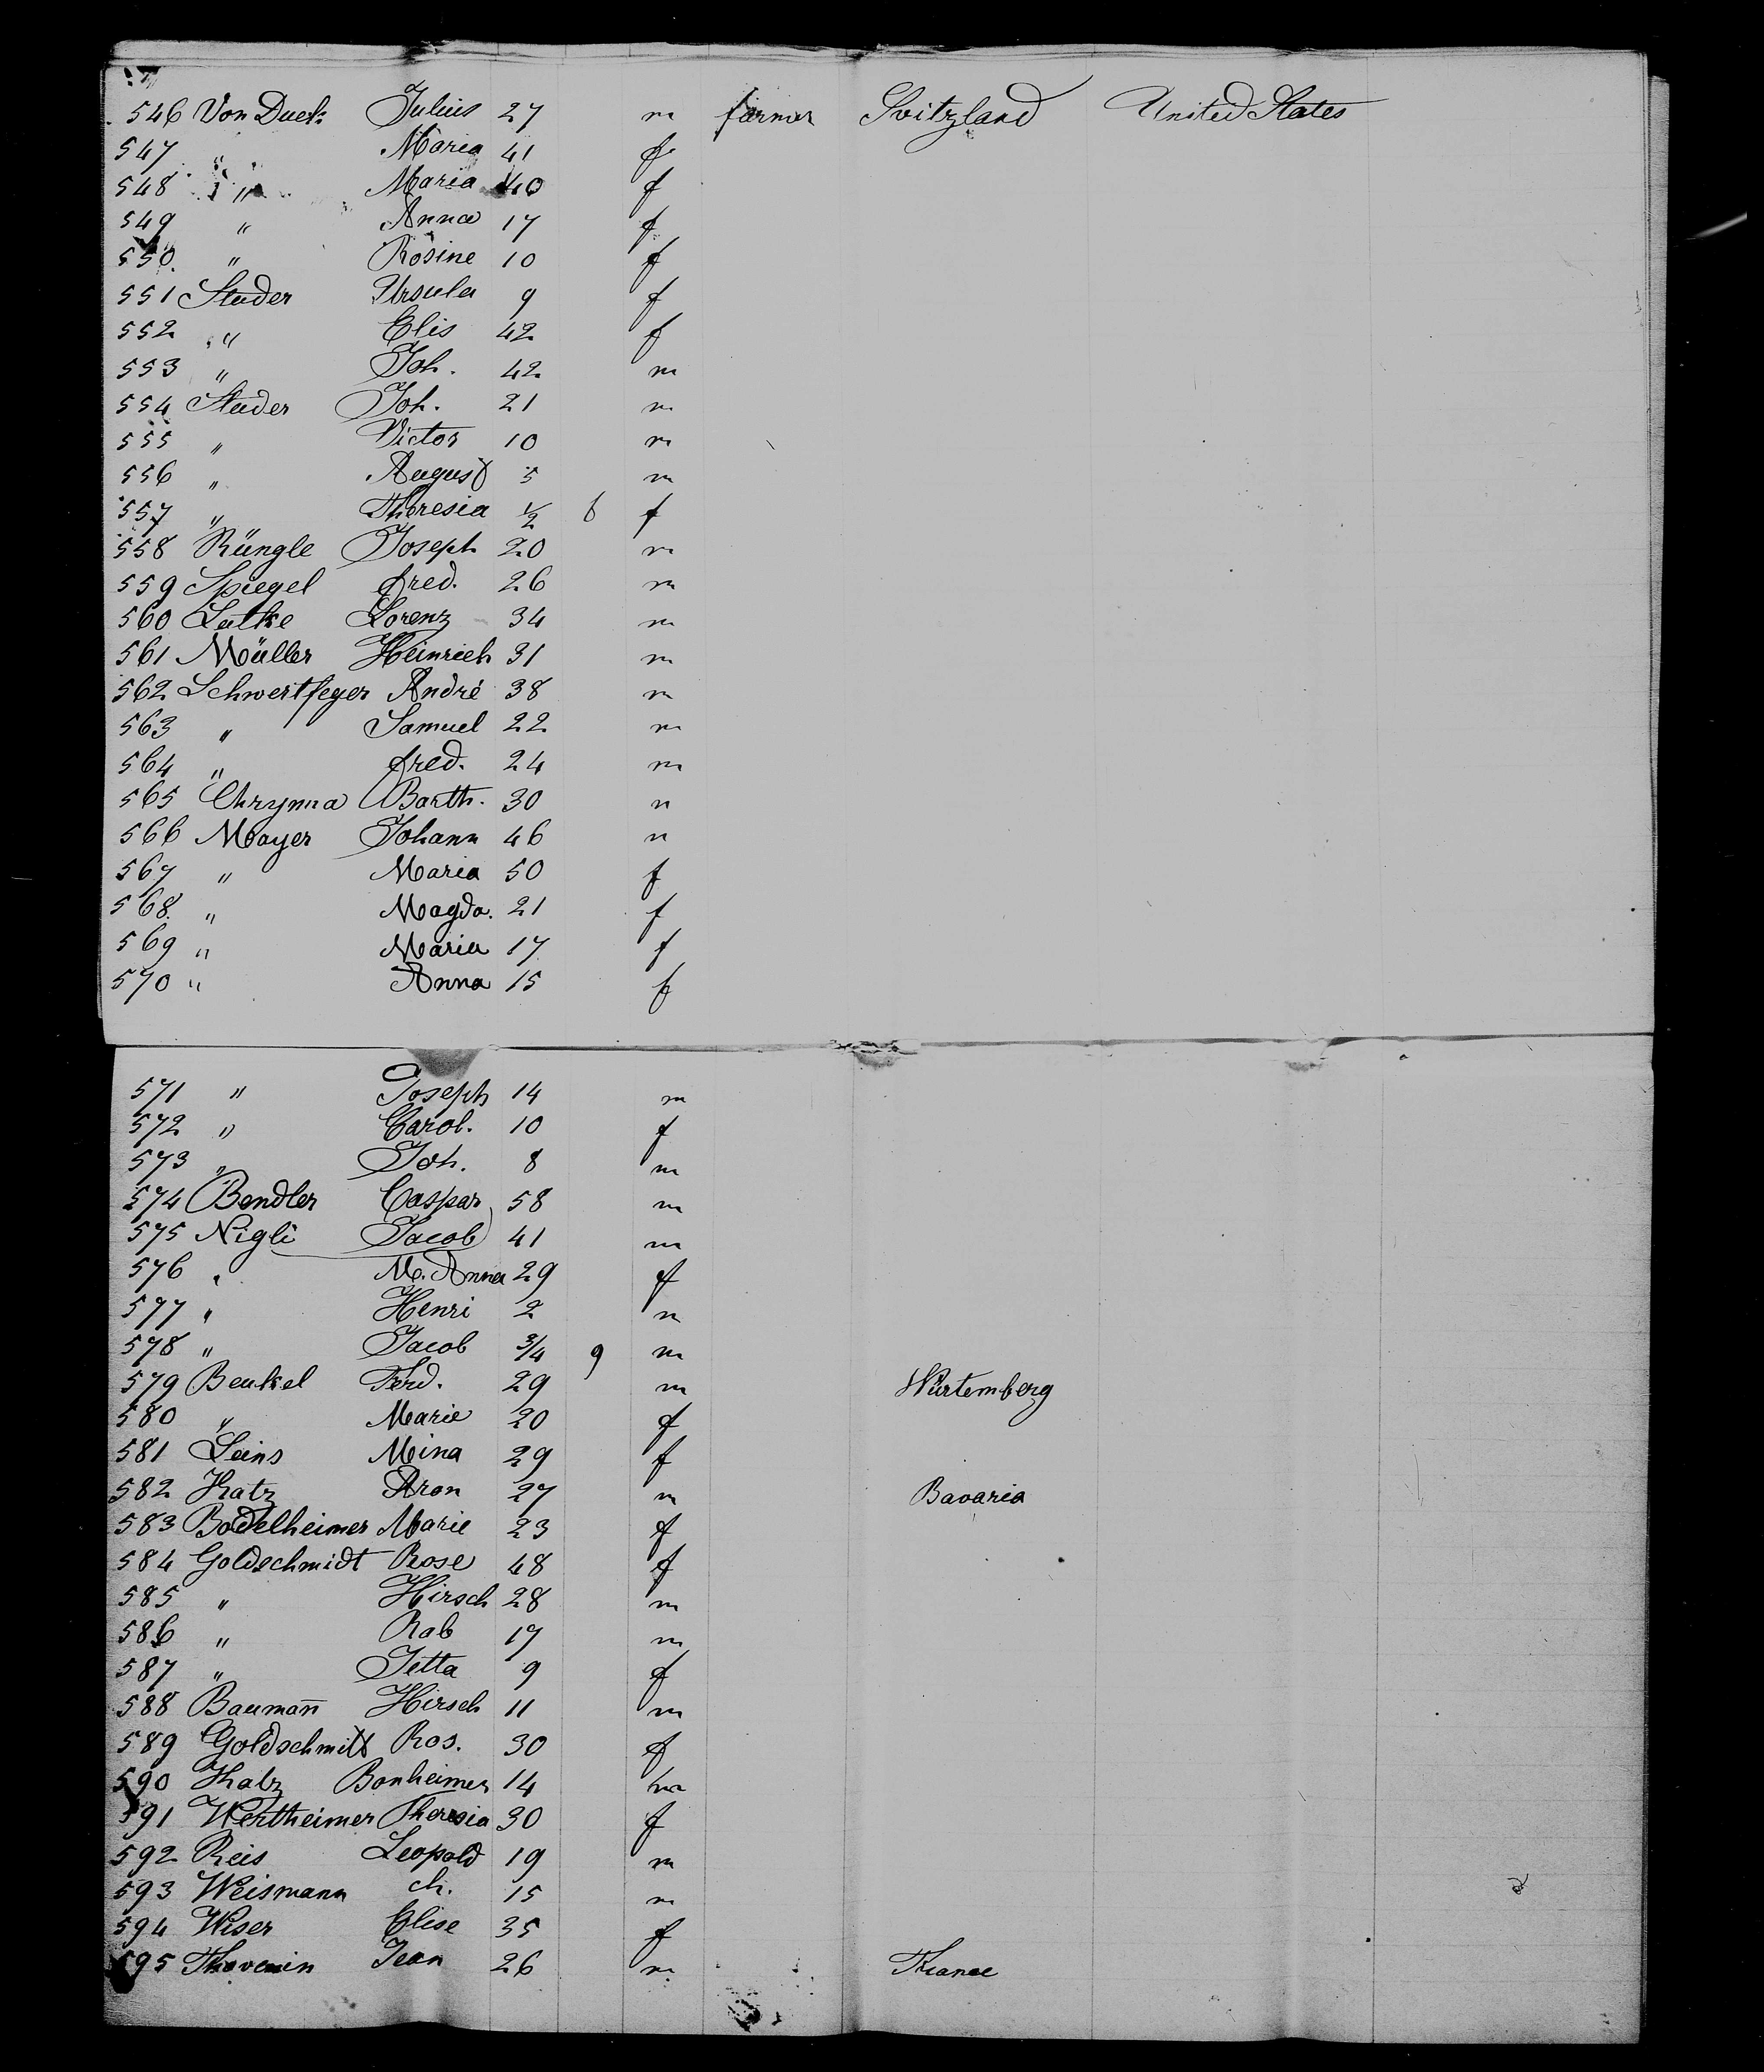 546 Von Duck Julius 27 m farmer Switzland United States
547 " Maria 41 f
548 " Maria 40 f
549 " Anna 17 f
550 " Rosine 10 f
551 Studer Ursula 9 f
552 " Elis 42 f
553 " Joh. 42 m
554 Studer Joh. 21 m
555 " Victor 10 m
556 " August 5 m
557 " Theresia 1/2 6 f
558 Rüngle Joseph 20 m
559 Spiegel fred. 26 m
560 Latke Lorenz 34 m
561 Müller Heinrich 31 m
562 Schwertfeger André 38 m
563 " Samuel 22 m
564 " fred. 24 m
565 Chrynna Barth. 30 m
566 Mayer Johann 46 m
567 " Maria 50 f
568 " Magda. 21 f
569 " Maria 17 f
570 " Anna 15 f
571 " Joseph 14 m
572 " Carol. 10 f
573 " Joh. 8 m
574 Bendler Caspar 58 m
575 Nigli Jacob 41 m
576 " M. Anna 29 f
577 " Henri 2 m
578 " Jacob 3/4 9 m
579 Beukel Ferd. 29 m Würtemberg
580 " Marie 20 f
581 Leins Mina 29 f
582 Katz Aron 27 m Bavaria
583 Bodelheimer Marie 23 f
584 Goldschmidt Rose 48 f
585 " Hirsch 28 m
586 " Rab 17 m
587 " Jetta 9 f
588 Baumañ Hirsch 11 m
589 Goldschmitt Ros. 30 f
590 Katz Bonheimer 14 m
591 Wertheimer Theresia 30 f
592 Reis Leopold 19 m
593 Weismann ch. 15 m
594 Wiser Elise 35 f
595 Thevenin Jean 26 m France